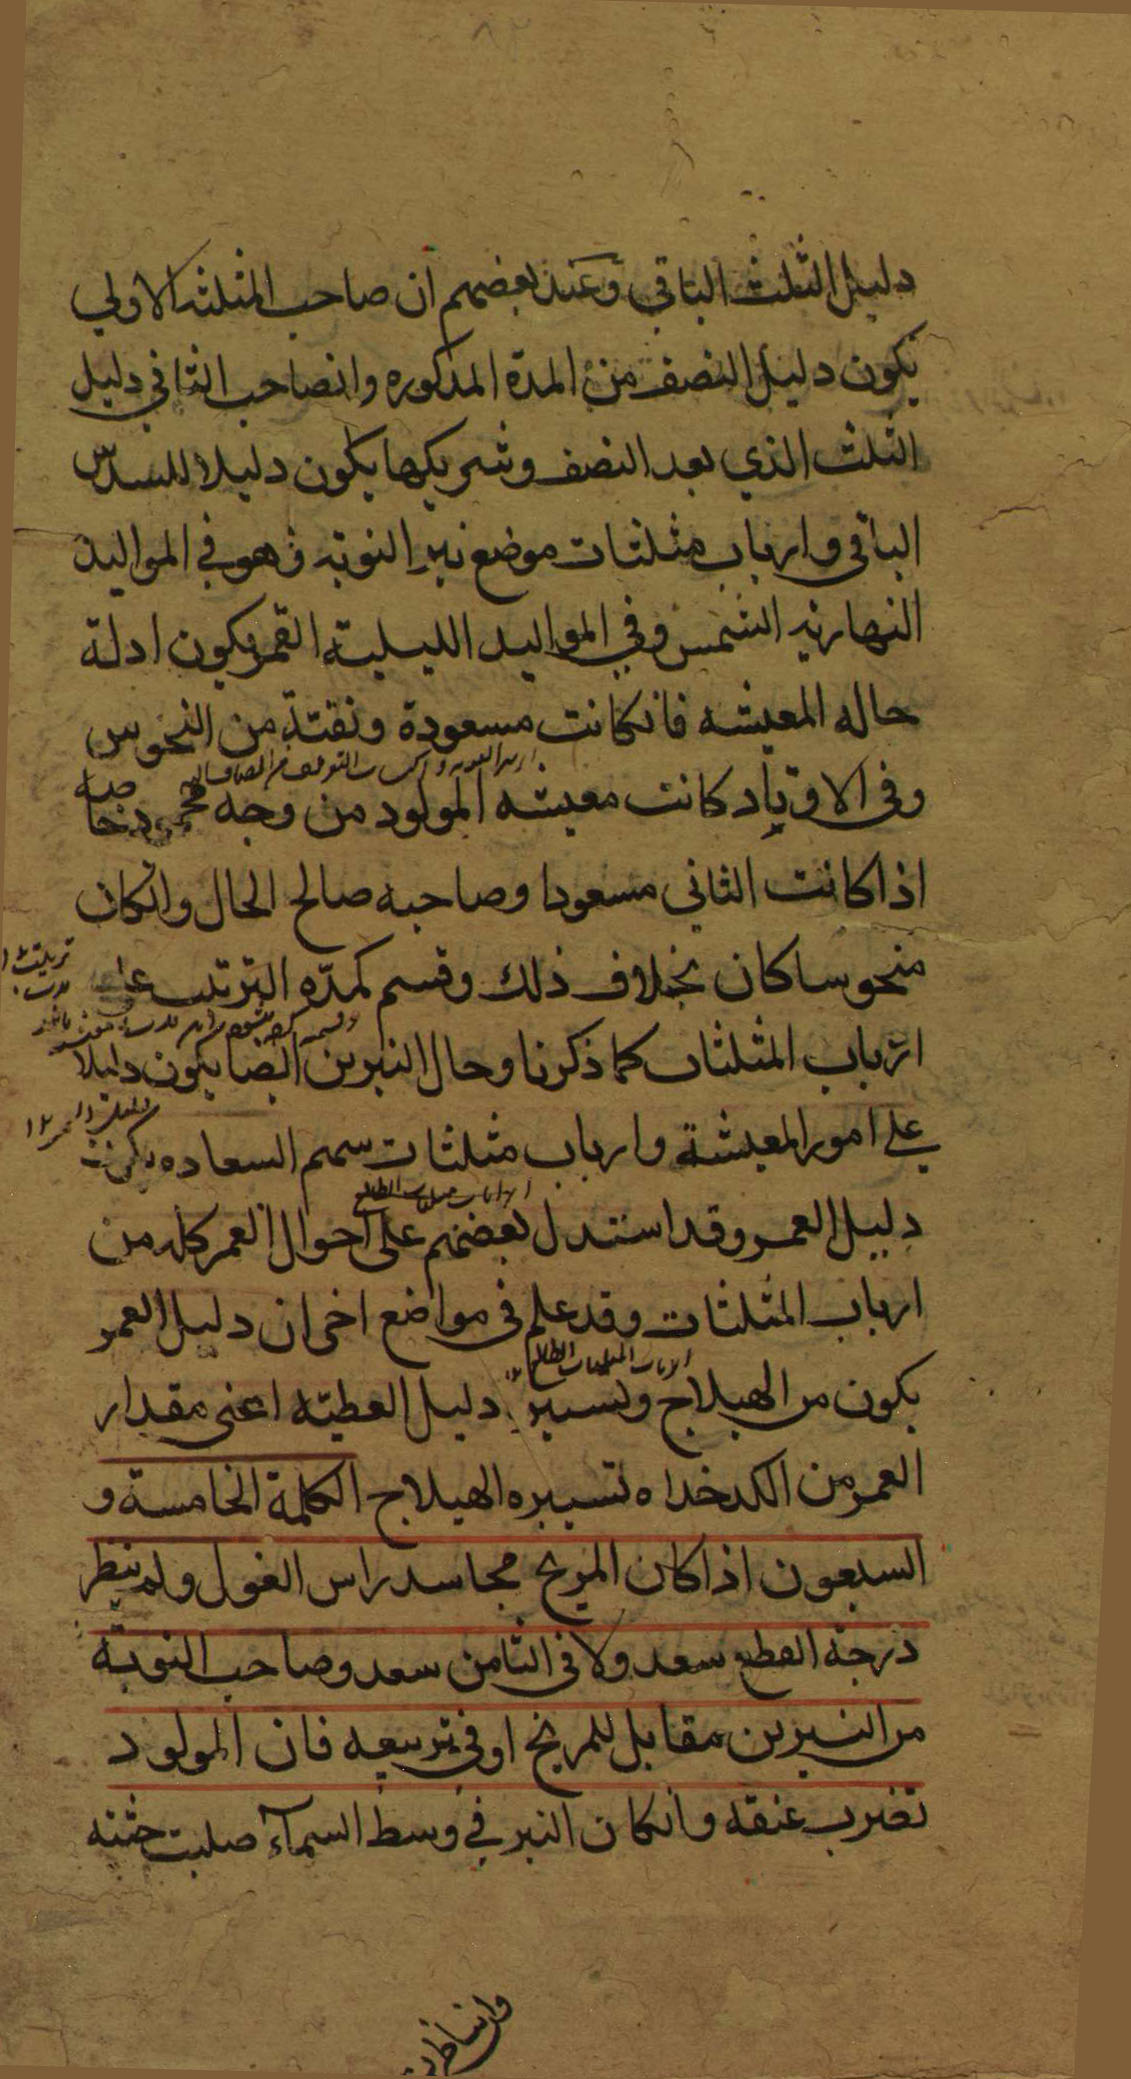 دليل الثلث الباقي وعند بعضهم ان صاحب المثلثه الاولي
يكون دليل النصف من المدة المذكوره وانصاحب الثاني دليل
الثلث الذي بعد النصف وشريكها يكون دليلا للسدس
الباقي وارباب مثلثات موضع نير النوبه وهو في المواليد
النهاريه الشمس وفي المواليد الليلية القمر يكون ادلة
حاله المعيشه فانكانت مسعودة ونقتة من النحوس
وفي الاوتاد كانت معيشه المولود من وجه محمود خاصه
اذا كانت الثاني مسعودا وصاحبه صالح الحال وانكان
منحوسا كان بخلاف ذلك وقسم كمدّه الترتيب على
ارباب المثلثات كما ذكرنا وحال النيرين ايضا يكون دليلا
على امور المعيشة وارباب مثلثات سهم السعاده
ارباب مثلثات الطالع
دليل العمر وقد استدل بعضهم على احوال العمر كله من
ارباب المثلثات وقد علم في مواضع اخرى ان دليل العمر
ارباب المثلثات الطالع
يكون من الهيلاج وتسيير دليل العطيّه اعني مقدار
العمر من الكدخداه تسييره الهيلاج الكلمة الخامسة و
السبعون اذا كان المريخ مجاسد راس الغول ولم ينظر
درجة القطع سعد ولا في الثامن سعد وصاحب النوبة
من النيرين مقابل للمريخ او في تربيعه فان المولود
تضرب عنقه وانكان النير في وسط السمآء صلبت جثته